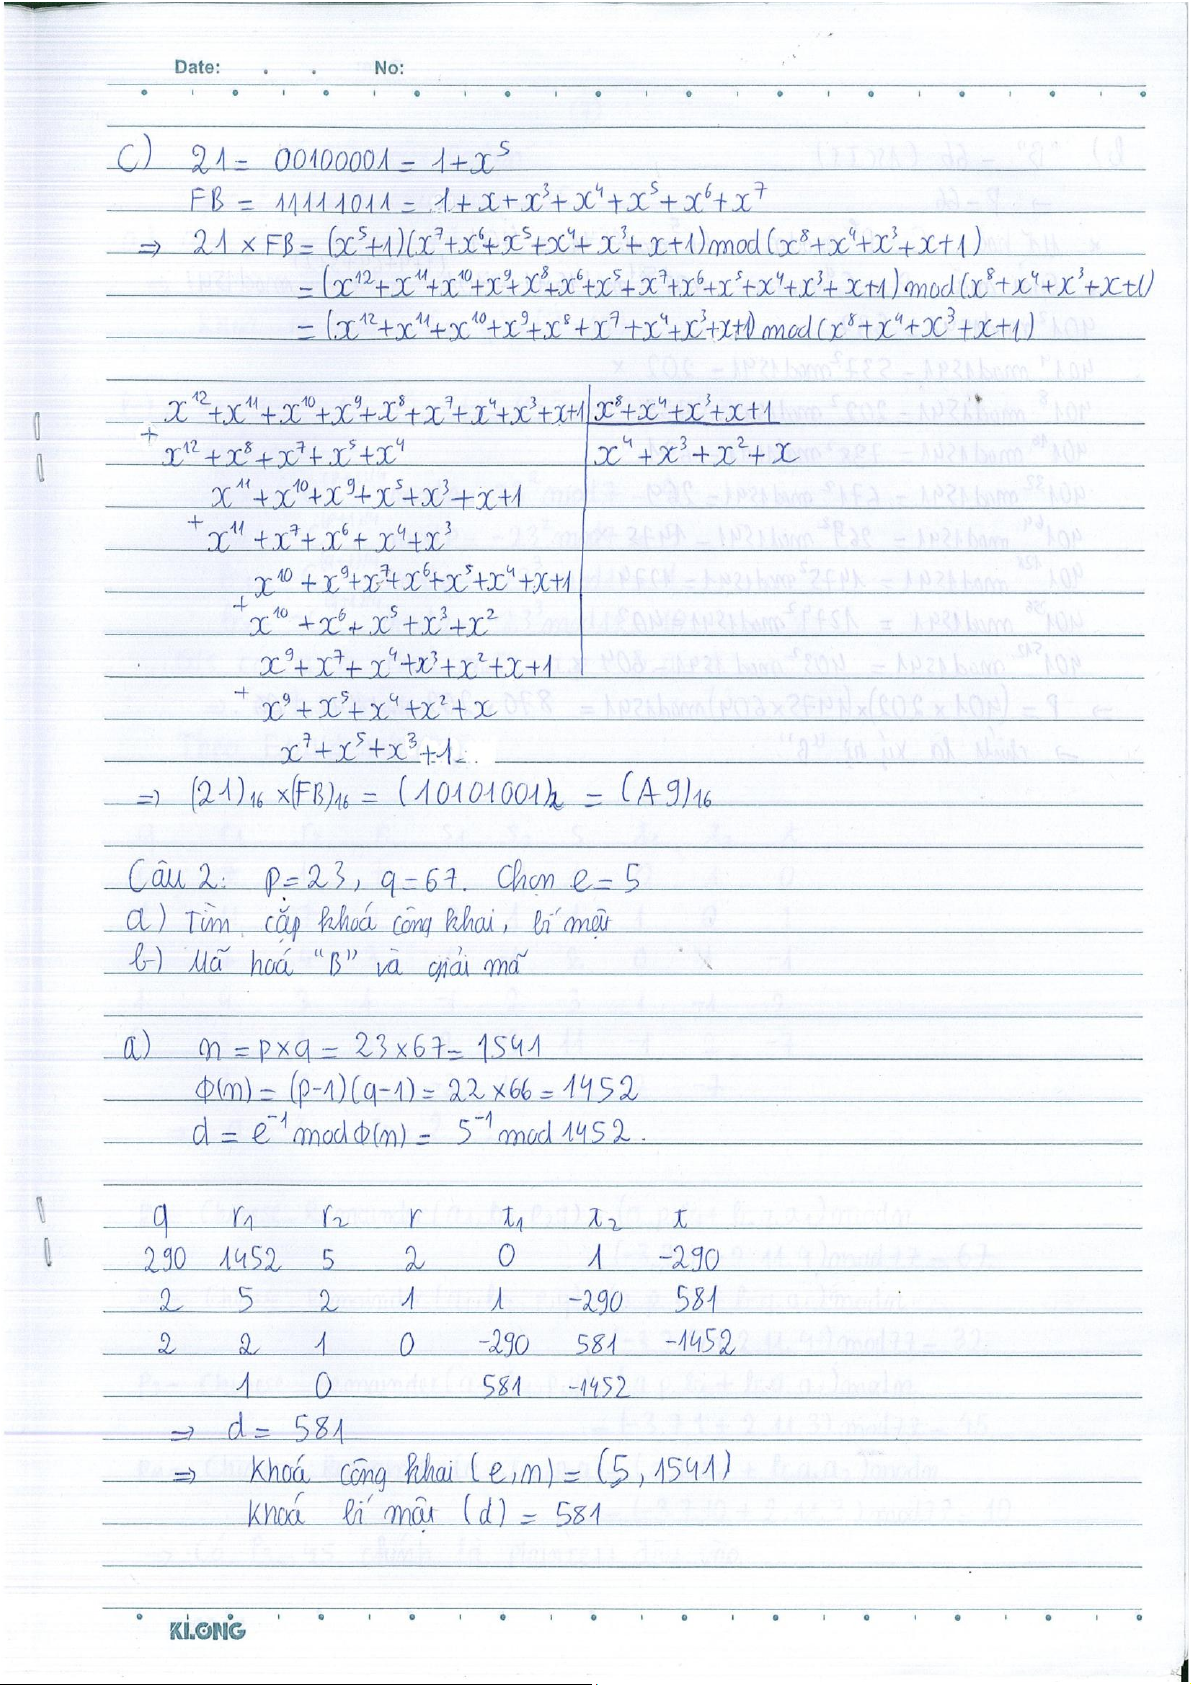 Date: . . No:
c) 21 = 00100001 = 1+x⁵
FB = 11111011 = 1+x+x³+x⁴+x⁵+x⁶+x⁷
⇒ 21 × FB = (x⁵+1)(x⁷+x⁶+x⁵+x⁴+x³+x+1) mod (x⁸+x⁴+x³+x+1)
= (x¹²+x¹¹+x¹⁰+x⁹+x⁸+x⁶+x⁵+x⁷+x⁶+x⁵+x⁴+x³+x+1) mod (x⁸+x⁴+x³+x+1)
= (x¹²+x¹¹+x¹⁰+x⁹+x⁸+x⁷+x⁴+x³+x+1) mod (x⁸+x⁴+x³+x+1)
x¹²+x¹¹+x¹⁰+x⁹+x⁸+x⁷+x⁴+x³+x+1 | x⁸+x⁴+x³+x+1
+ x¹²+x⁸+x⁷+x⁵+x⁴ | x⁴+x³+x²+x
x¹¹+x¹⁰+x⁹+x⁵+x³+x+1
+ x¹¹+x⁷+x⁶+x⁴+x³
x¹⁰+x⁹+x⁷+x⁶+x⁵+x⁴+x+1
+ x¹⁰+x⁶+x⁵+x³+x²
x⁹+x⁷+x⁴+x³+x²+x+1
+ x⁹+x⁵+x⁴+x²+x
x⁷+x⁵+x³+1
⇒ (21)₁₆ × (FB)₁₆ = (10101001)₂ = (A9)₁₆
Câu 2: p=23, q=67. Chọn e=5
a) Tìm cặp khoá công khai, bí mật
b) Mã hoá "B" và giải mã
a) n = p×q = 23×67 = 1541
Φ(n) = (p-1)(q-1) = 22×66 = 1452
d = e⁻¹ mod Φ(n) = 5⁻¹ mod 1452.
q r₁ r₂ r t₁ t₂ t
290 1452 5 2 0 1 -290
2 5 2 1 1 -290 581
2 2 1 0 -290 581 -1452
1 0 581 -1452
⇒ d = 581
⇒ Khoá công khai (e,n) = (5, 1541)
Khoá bí mật (d) = 581
KLONG